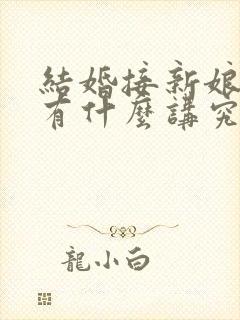 結婚接新娘
有什麼講究
龍小白